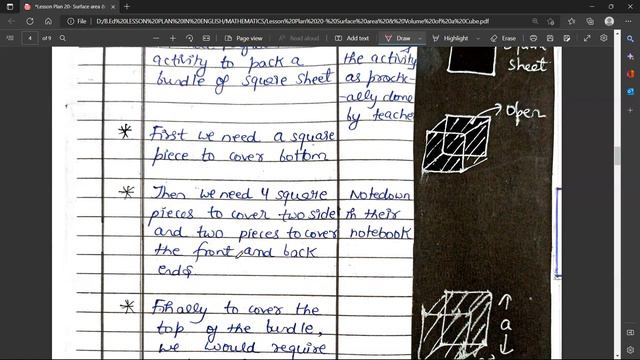 *Lesson Plan 20- Surface area &
D:/B.Ed/LESSON PLAN IN ENGLISH/MATHEMATICS/Lesson%20Plan%2020-%20Surface%20area%20&%20Volume%20of%20a%20Cube.pdf
4
of 9
Draw
Read aloud
activity to pack a
bundle of square sheet
the activity
as practic-
-ally done
by teacher
sheet
* First we need a square
piece to cover bottom
Open
* Then we need 4 square
pieces to cover two side
and two pieces to cover
the front and back
ends
Notedown
in their
notebook
* Finally to cover the
top of the bundle,
we would require
a